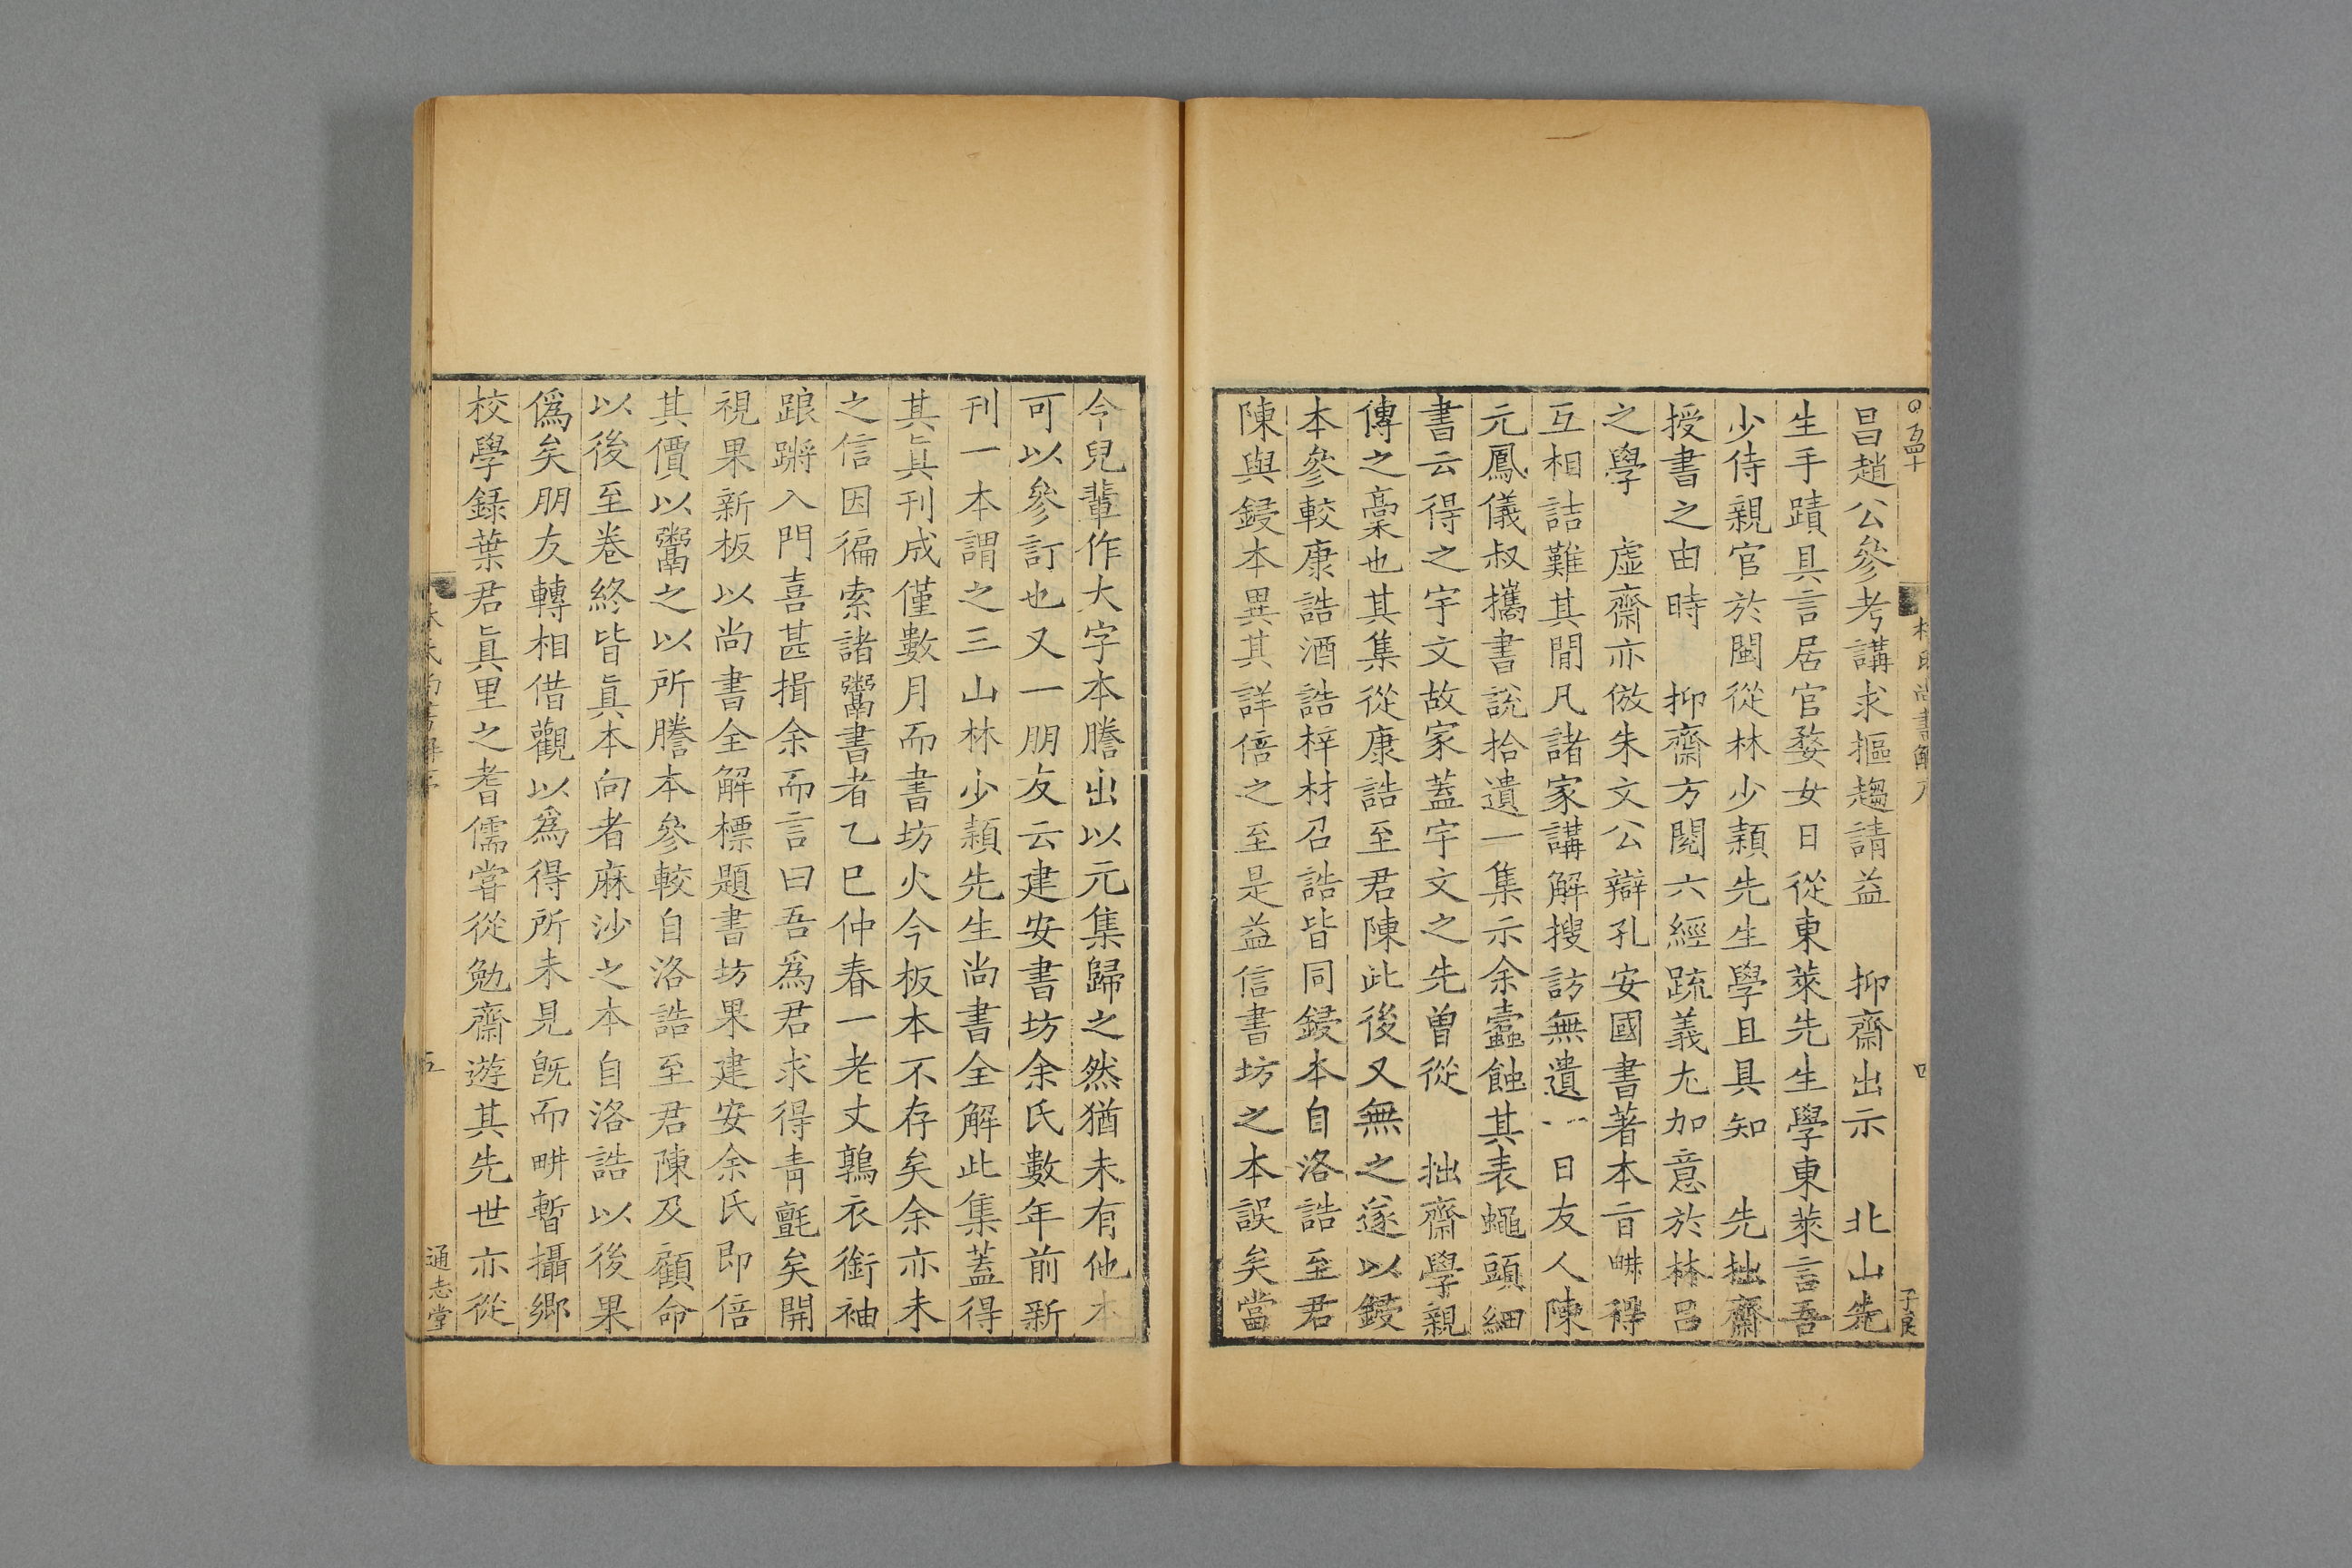 昌趙公參考講求摳趨請益　抑齋出示　北山先
生手蹟具言居官婺女日從東萊先生學東萊言吾
少侍親官於閩從林少穎先生學且具知　先拙齋
授書之由時　抑齋方閱六經疏義尤加意於林呂
之學　虛齋亦倣朱文公辯孔安國書著本旨畊得
互相詰難其閒凡諸家講解搜訪無遺一日友人陳
元鳳儀叔攜書說拾遺一集示余蠹蝕其表蠅頭細
書云得之宇文故家蓋宇文之先曾從　拙齋學親
傳之槀也其集從康誥至君陳此後又無之遂以鋟
本參較康誥酒誥梓材召誥皆同鋟本自洛誥至君
陳與鋟本異其詳倍之至是益信書坊之本誤矣當
今兒輩作大字本謄出以元集歸之然猶未有他本
可以參訂也又一朋友云建安書坊余氏數年前新
刊一本謂之三山林少穎先生尚書全解此集蓋得
其眞刊成僅數月而書坊火今板本不存矣余亦未
之信因徧索諸鬻書者乙巳仲春一老丈鶉衣銜袖
踉蹡入門喜甚揖余而言曰吾爲君求得靑氈矣開
視果新板以尚書全解標題書坊果建安余氏即倍
其價以鬻之以所謄本參較自洛誥至君陳及顧命
以後至卷終皆眞本向者麻沙之本自洛誥以後果
僞矣朋友轉相借觀以爲得所未見旣而畊暫攝鄉
校學錄葉君眞里之耆儒嘗從勉齋遊其先世亦從
五
通志堂